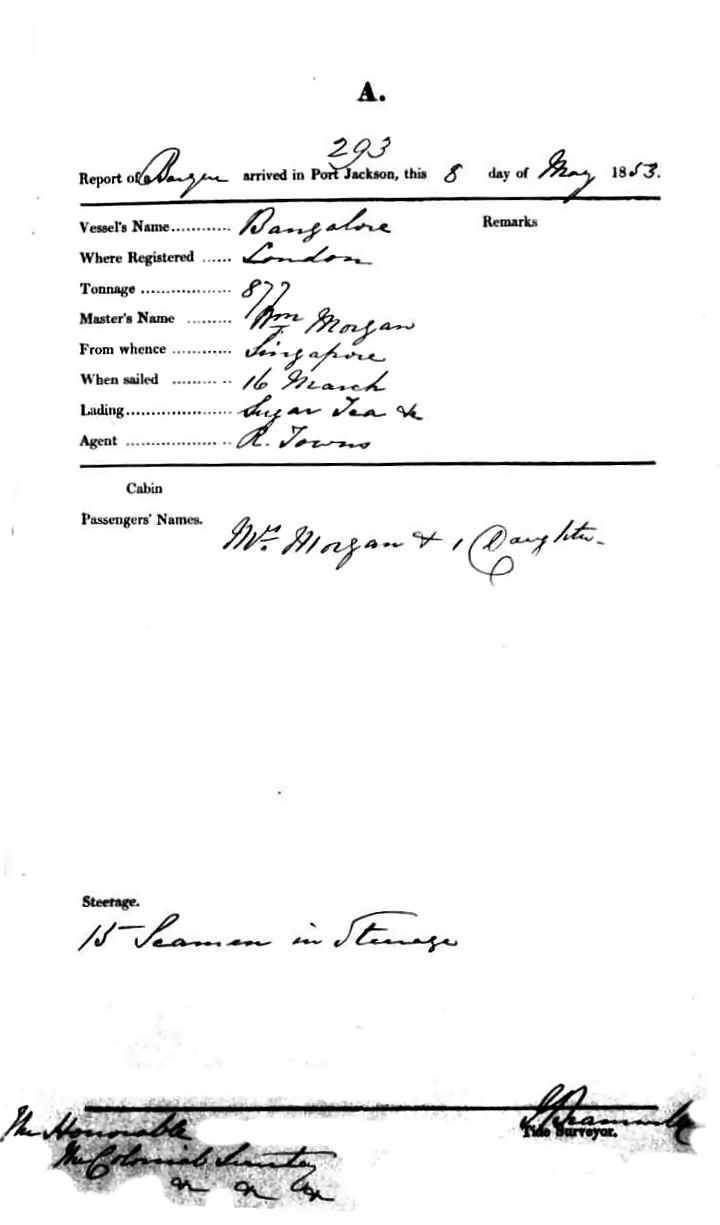 A.
293
Report of a Barque arrived in Port Jackson, this 8 day of May 1853.
Vessel's Name............ Bangalore Remarks
Where Registered ...... London
Tonnage .................. 877
Master's Name ......... Wm Morgan
From whence ............ Singapore
When sailed ......... .. 16 March
Lading..................... Sugar Tea &c
Agent .................. .. R. Towns
Cabin
Passengers' Names.
Mrs. Morgan & 1 Daughter
Steerage.
15 Seamen in Steerage
Tide Surveyor.
The Honorable
The Colonial Secretary
&c &c &c